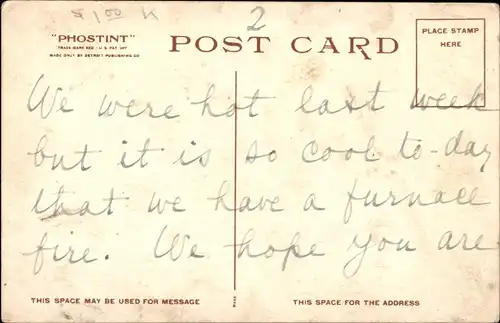 $1.00 K
2
"PHOSTINT"
TRADE MARK REG. U.S. PAT. OFF.
MADE ONLY BY DETROIT PUBLISHING CO.
POST CARD
PLACE STAMP
HERE
We were hot last week
but it is so cool to-day
that we have a furnace
fire. We hope you are
THIS SPACE MAY BE USED FOR MESSAGE
THIS SPACE IS FOR THE ADDRESS